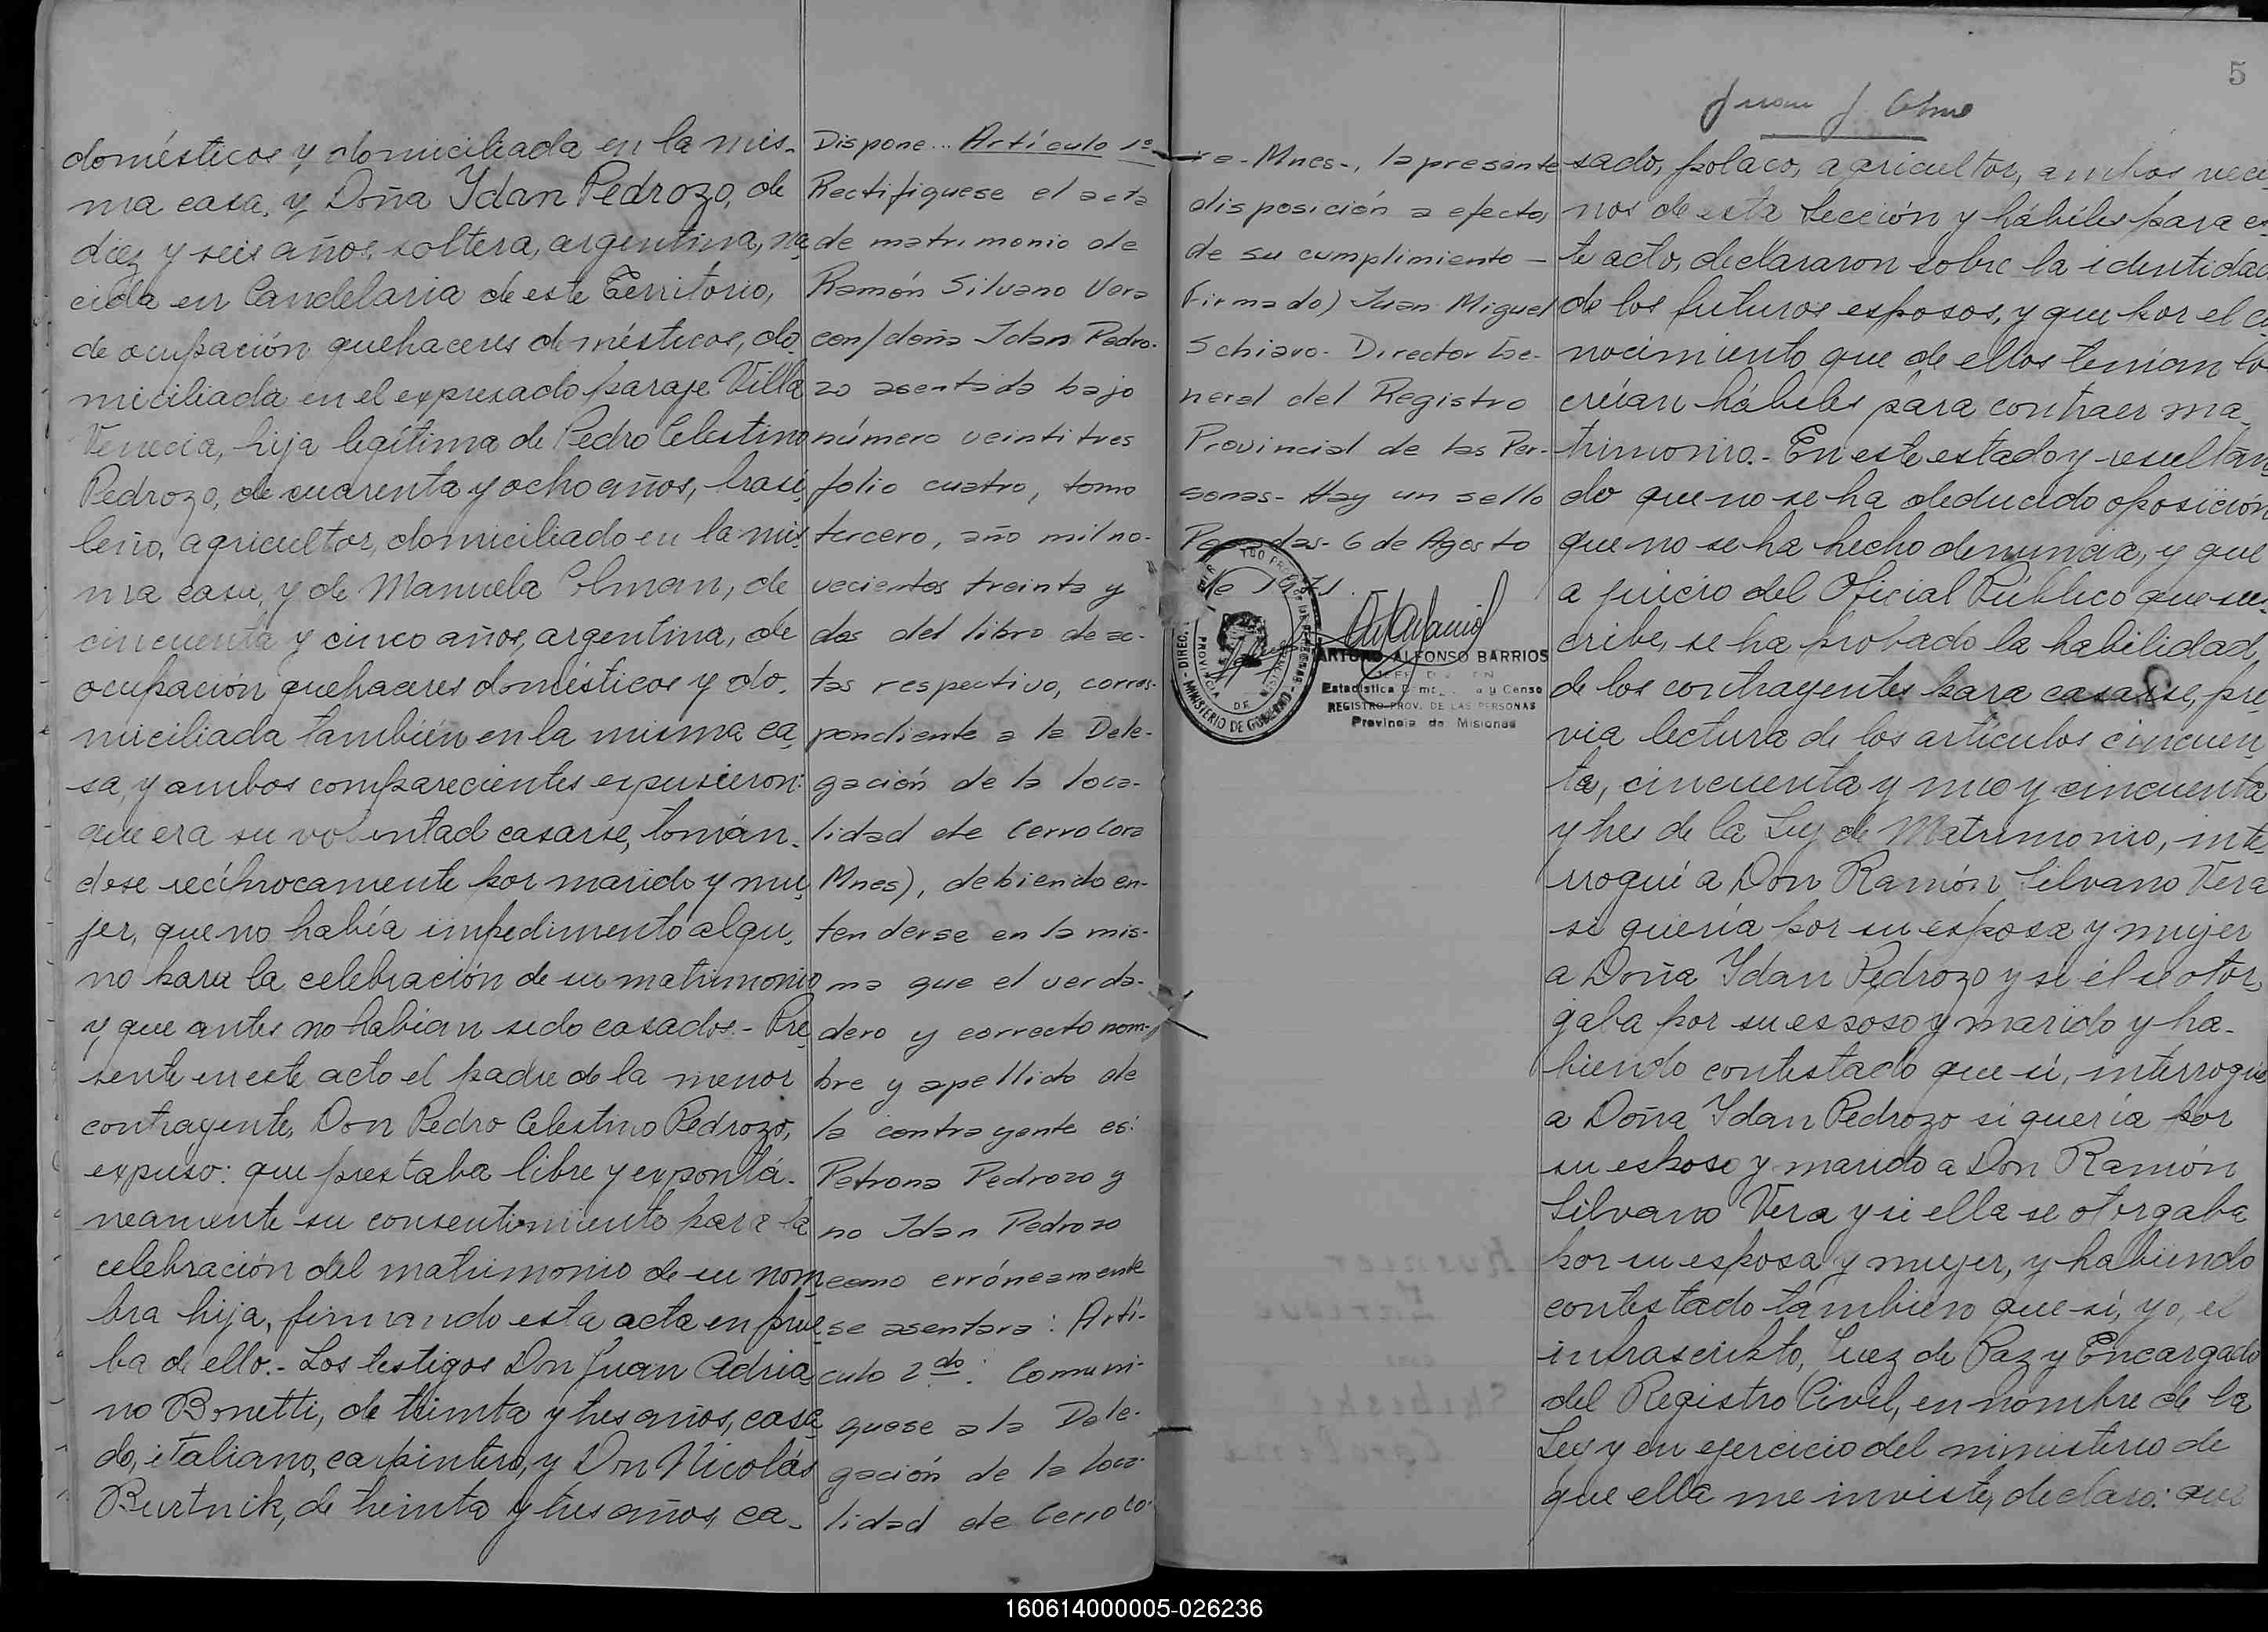 domésticos y domiciliada en la mis-
ma casa, y Doña Ydan Pedrozo, de
diez y seis años, soltera, argentina, na-
cida en Candelaria de este Territorio,
de ocupación quehaceres domésticos, do-
miciliada en el expresado paraje Villa
Venecia, hija legítima de Pedro Celestino
Pedrozo, de cuarenta y ocho años, brasi-
leño, agricultor, domiciliado en la mis-
ma casa, y de Manuela Colman, de
cincuenta y cinco años, argentina, de
ocupación quehaceres domésticos y do-
miciliada también en la misma ca-
sa, y ambos comparecientes expusieron:
que era su voluntad casarse, tomán-
dose recíprocamente por marido y mu-
jer, que no había impedimento algu-
no para la celebración de su matrimonio
y que antes no habían sido casados.- Pre-
sente en este acto el padre de la menor
contrayente, Don Pedro Celestino Pedrozo,
expuso: que prestaba libre y espontá-
neamente su consentimiento para la
celebración del matrimonio de su nom-
bra hija, firmando esta acta en prue-
ba de ello.- Los testigos Don Juan Adria-
no Bonetti, de treinta y tres años, casa-
do, italiano, carpintero, y Don Nicolás
Burtnik, de treinta y tres años, ca-
Dispone... Artículo 1º
Rectifiquese el acta
de matrimonio de
Ramón Silvano Vera
con/doña Idan Pedro-
zo asentada bajo
número veintitres
folio cuatro, tomo
tercero, año mil no-
vecientos treinta y
dos del libro de ac-
tas respectivo, corres-
pondiente a la Dele-
gación de la loca-
lidad de Cerro Cora
Mnes), debiendo en-
tenderse en la mis-
ma que el verda-
dero y correcto nom-
bre y apellido de
la contrayente es:
Petrona Pedrozo y
no Idan Pedrozo
como erróneamente
se asentara: Artí-
culo 2do: Comuni-
quese a la Dele-
gación de la loca-
lidad de Cerro Co-
ra - Mnes-, la presente
disposición a efecto,
de su cumplimiento -
Firmado) Juan Miguel
Schiavo- Director Ge-
neral del Registro
Provincial de las Per-
sonas- Hay un sello
Posadas- 6 de Agosto
de 1971.
ARTURO ALFONSO BARRIOS
Estadística y Censo
REGISTRO PROV. DE LAS PERSONAS
Provincia de Misiones
MINISTERIO DE GOBIERNO
5
Juan J.
sado, polaco, agricultor, ambos veci-
nos de esta Sección y hábiles para es-
te acto, declararon sobre la identidad
de los futuros esposos, y que por el co-
nocimiento que de ellos tenían los
creían hábiles para contraer ma-
trimonio.- En este estado y resultan-
do que no se ha deducido oposición
que no se ha hecho denuncia, y que
a juicio del Oficial Público que sus-
cribe, se ha probado la habilidad
de los contrayentes para casarse, pre-
via lectura de los artículos cincuen-
ta, cincuenta y uno y cincuenta
y tres de la Ley de Matrimonio, inte-
rrogué a Don Ramón Silvano Vera
si quería por su esposa y mujer
a Doña Ydan Pedrozo y si él se otor-
gaba por su esposo y marido y ha-
biendo contestado que sí, interrogué
a Doña Ydan Pedrozo si quería por
su esposo y marido a Don Ramón
Silvano Vera y si ella se otorgaba
por su esposa y mujer, y habiendo
contestado también que sí, yo, el
infrascripto, Juez de Paz y Encargado
del Registro Civil, en nombre de la
Ley y en ejercicio del ministerio de
que ella me inviste, declaro: que
160614000005-026236